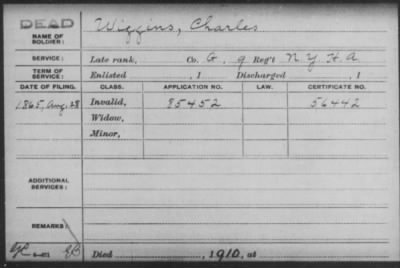 DEAD
NAME OF SOLDIER: Wiggins, Charles
SERVICE: Late rank, Co. G, 9 Reg't N.Y.H.A.
TERM OF SERVICE: Enlisted , 1 Discharged , 1
DATE OF FILING. CLASS. APPLICATION NO. LAW. CERTIFICATE NO.
1865, Aug. 28 Invalid, 85452 56442
Widow,
Minor,
ADDITIONAL SERVICES:
REMARKS:
Died , 1910, at